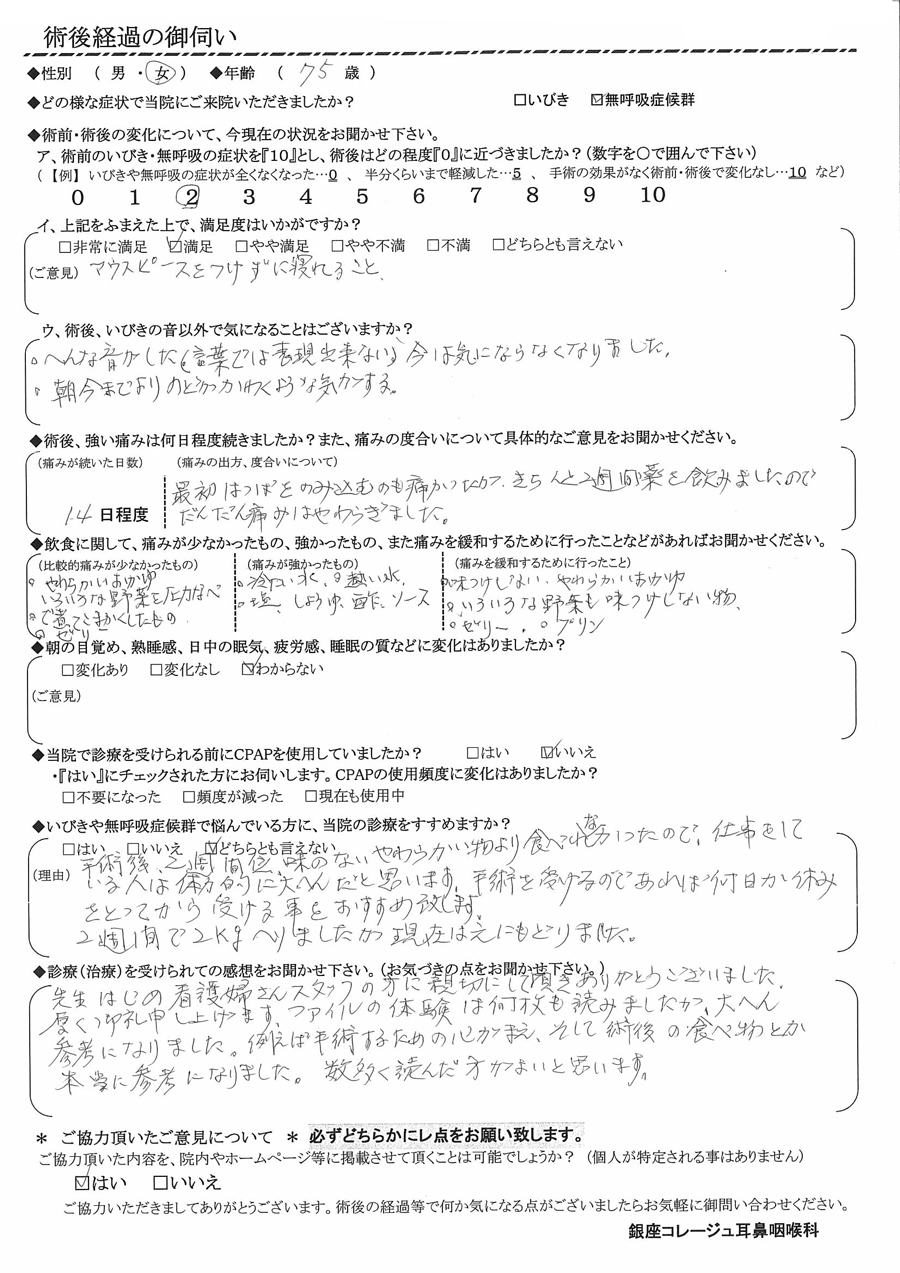 術後経過の御伺い
◆性別 ( 男 ・ 女 ) ◆年齢 ( 75 歳 )
◆どの様な症状で当院にご来院いただきましたか? □いびき ☑無呼吸症候群
◆術前・術後の変化について、今現在の状況をお聞かせ下さい。
ア、術前のいびき・無呼吸の症状を『10』とし、術後はどの程度『0』に近づきましたか?(数字を〇で囲んで下さい)
(【例】いびきや無呼吸の症状が全くなくなった…0 、 半分くらいまで軽減した…5 、 手術の効果がなく術前・術後で変化なし…10 など)
0 1 2 3 4 5 6 7 8 9 10
イ、上記をふまえた上で、満足度はいかがですか?
□非常に満足 ☑満足 □やや満足 □やや不満 □不満 □どちらとも言えない
(ご意見) マウスピースをつけずに寝れること、
ウ、術後、いびきの音以外で気になることはございますか?
○へんな音がした(言葉では表現出来ない)今は気にならなくなりました。
○朝今までよりのどがかわくような気がする。
◆術後、強い痛みは何日程度続きましたか?また、痛みの度合いについて具体的なご意見をお聞かせください。
(痛みが続いた日数) (痛みの出方、度合いについて)
最初はつばをのみ込むのも痛かったが、きちんと2週間薬を飲みましたので
14 日程度 だんだん痛みはやわらぎました。
◆飲食に関して、痛みが少なかったもの、強かったもの、また痛みを緩和するために行ったことなどがあればお聞かせください。
(比較的痛みが少なかったもの) (痛みが強かったもの) (痛みを緩和するために行ったこと)
○やわらかいおかゆ ○冷たい水、○熱い水、 ○味つけしない、やわらかいおかゆ
いろいろな野菜を圧力なべ ○塩、しょうゆ、酢、ソース ○いろいろな野菜も味つけしない物、
○で煮てこまかくしたもの ○ゼリー、○プリン
○ゼリー
◆朝の目覚め、熟睡感、日中の眠気、疲労感、睡眠の質などに変化はありましたか?
□変化あり □変化なし ☑わからない
(ご意見)
◆当院で診療を受けられる前にCPAPを使用していましたか? □はい ☑いいえ
・『はい』にチェックされた方にお伺いします。CPAPの使用頻度に変化はありましたか?
□不要になった □頻度が減った □現在も使用中
◆いびきや無呼吸症候群で悩んでいる方に、当院の診療をすすめますか?
□はい □いいえ ☑どちらとも言えない
(理由) 手術後、2週間位、味のないやわらかい物より食べれなかったので、仕事をして
いる人は体力的に大へんだと思います。手術を受けるのであれば何日か休み
をとってから受ける事をおすすめ致します。
2週間で2Kgへりましたが現在は元にもどりました。
◆診療(治療)を受けられての感想をお聞かせ下さい。(お気づきの点をお聞かせ下さい。)
先生はじめ看護婦さんスタッフの方に親切にして頂きありがとうございました。
厚く御礼申し上げます。ファイルの体験は何枚も読みましたが、大へん
参考になりました。例えば手術するための心がまえ、そして術後の食べ物とか
本当に参考になりました。 数多く読んだ方がよいと思います。
* ご協力頂いたご意見について * 必ずどちらかにレ点をお願い致します。
ご協力頂いた内容を、院内やホームページ等に掲載させて頂くことは可能でしょうか? (個人が特定される事はありません)
☑はい □いいえ
ご協力いただきましてありがとうございます。術後の経過等で何か気になる点がございましたらお気軽に御問い合わせください。
銀座コレージュ耳鼻咽喉科